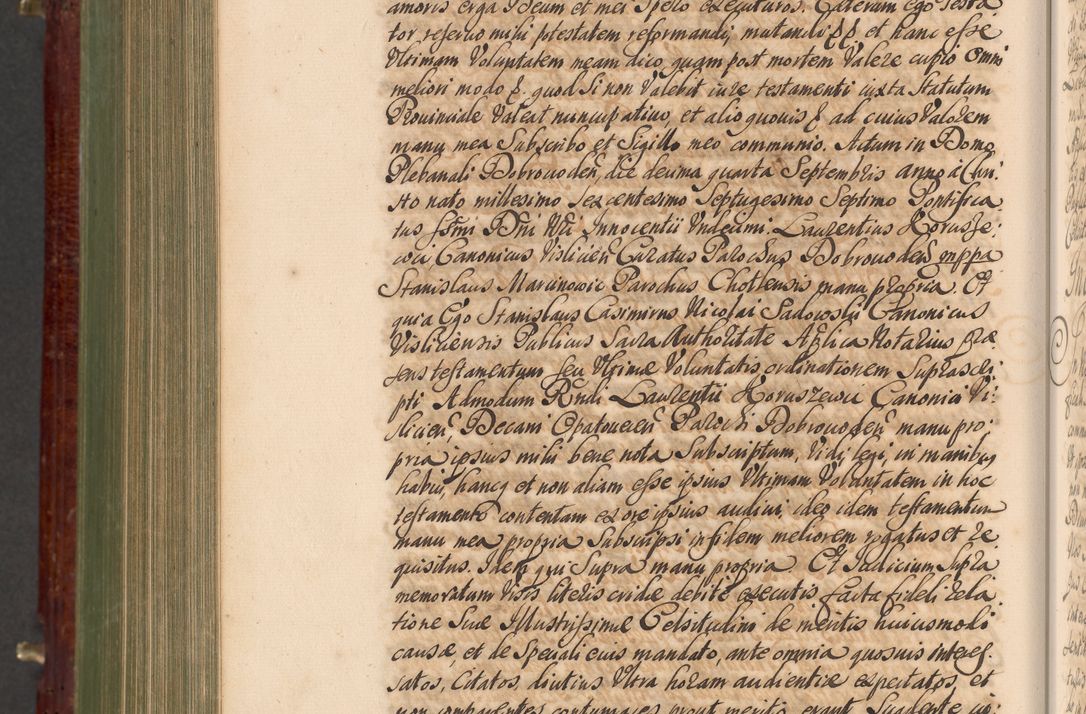 amoris erga Deum et mei Spero executuros. Cæterum Ego Testa
tor reservo mihi potestatem reformandi, mutandi et hanc esse
Ultimam Voluntatem meam dico, quam post mortem Valere cupio omni
meliori modo quod Si non Valebit iure testamenti iuxta Statutum
Provinciale Valeat nuncupativo, et alio quovis ad cuius Valorem
manu mea Subscribo et Sigillo meo communio. Actum in Domo
Plebanali Dobrowoden, die decima quarta Septembris anno à Chri
sto nato millesimo sexcentesimo Septuagesimo Septimo Pontifica
tus Ssmi Dni Nri Innocentii Undecimi. Laurentius Korusze:
wic Canonicus Vislicien Curatus Parochus Dobrowoden mppa
Stanislaus Marcinowic Parochus Chotlensis manu propria. Et
quia Ego Stanislaus Casimirus Nicolai Sadowski Canonicus
Visliciensis Publicus Sacra Authoritate Aplica Notarius præ
sens testamentum seu Ultimæ Voluntatis ordinationem Suprascri
pti Admodum Rndi Laurentii Koruszewic Canonici Vi:
slicien Decani Opatovecen Parochi Dobrowoden manu pro
pria ipsius mihi bene nota Subscriptum, Vidi, legi, in manibus
habui, hancq et non aliam esse ipsius Ultimam Voluntatem in hoc
testamento contentam ex ore ipsius audivi, ideo idem testamentum
manu mea propria Subscripsi in fidem meliorem rogatus et re
quisitus. Idem qui Supra manu propria. Et Iudicium Supra
memoratum Visis literis cridæ debite executis facta fideli rela
tione Suæ Illustrissimæ Celsitudini de meritis huiusmodi
causæ, et de Speciali eius mandato, ante omnia quosvis interes:
satos, Citatos, diutius Ultra horam audientiæ expectatos, et
non comparentes contumaces prout merito erant Suadente